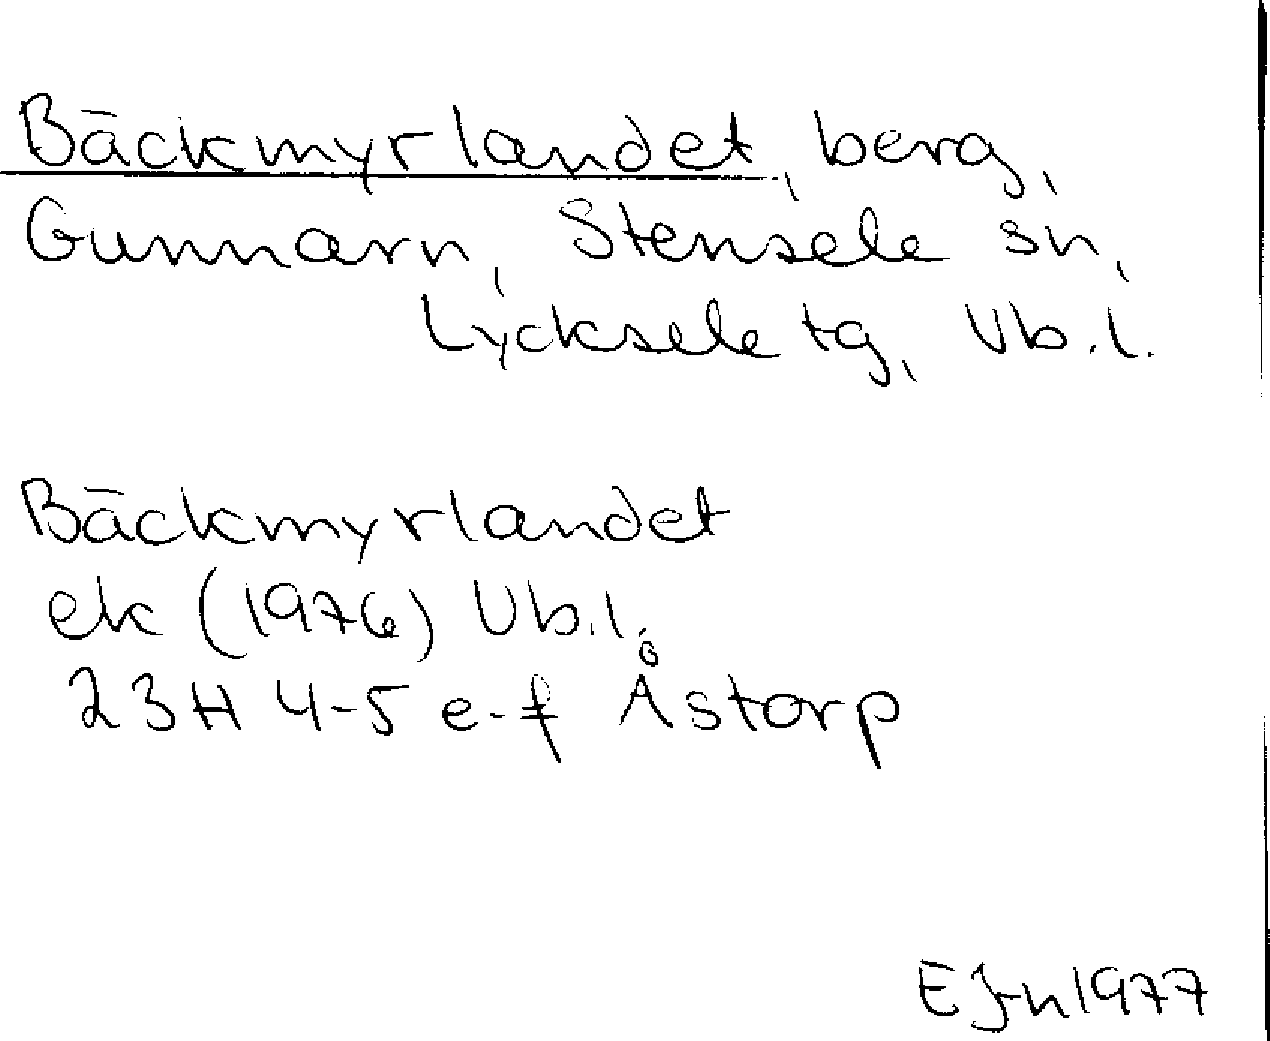 Bäckmyrlandet, berg,
Gunnarn, Stensele sn,
Lycksele tg, Vb.l.
Bäckmyrlandet
ek (1976) Vb.l.
23H 4-5 e-f Åstorp
EJ-n 1977